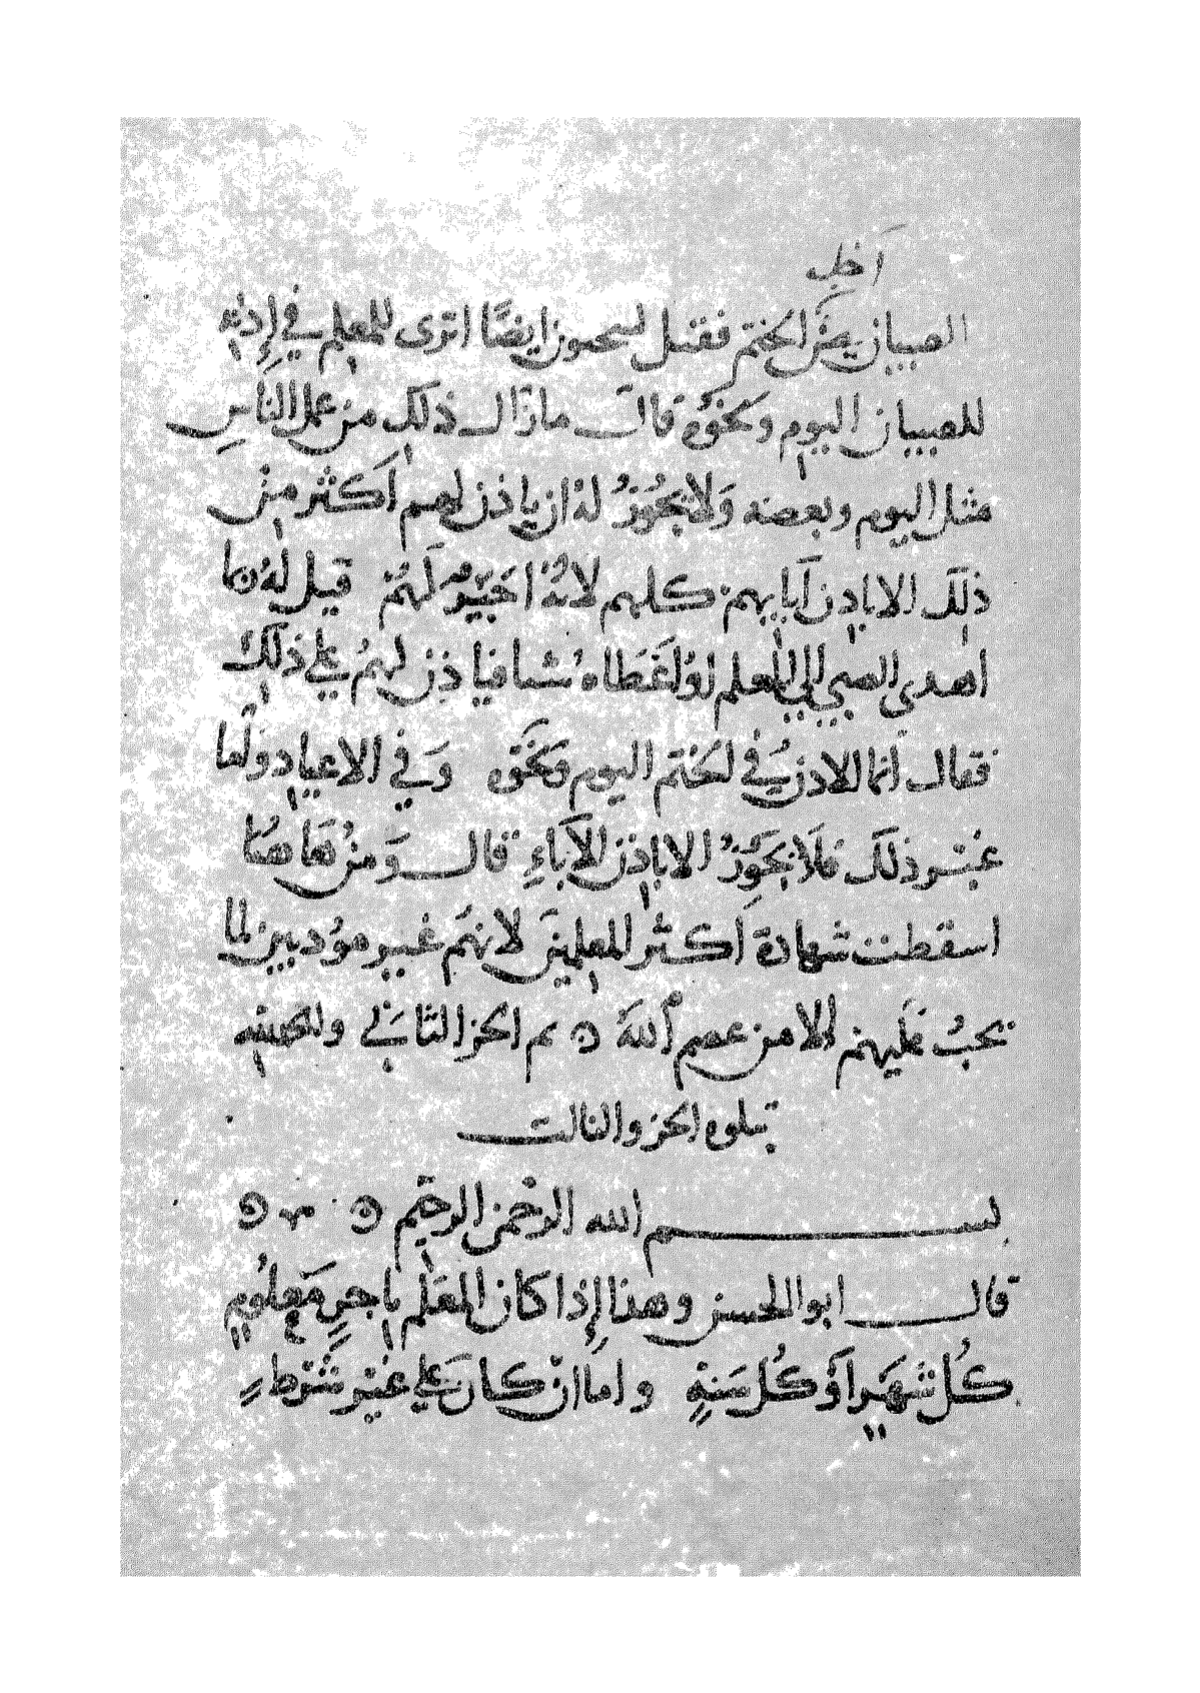 أجل
الصبيان يعني الختم فقيل لسحنون ايضًا اترى للمعلم في إذنه
للصبيان اليوم ونحوه قال ما زال ذلك من عمل الناس
مثل اليوم وبعضه ولا يجوزُ لهُ ان ياذن لهم اكثر من
ذلك الا باذن آبايهم كلهم لانهُ اجيرٌ لهُمْ قيل لهُ
اهدى الصبي الي المعلم او أعطاه شيا فياذن لهمُ علي ذلك
فقال انما الاذن في الختم اليوم ونحوه وَفي الاعياد واما
غير ذلك فلا يجوزُ الا باذن الآباءِ قال وَمنْ هَاهنا
اسقطت شهادة أكثر المعلمين لانهم غير مؤديين لما
يجبُ عليهم الا من عصم اللهُ تم الجز الثاني
يتلوه الجزو الثالث
بسم الله الرحمن الرحيم
قال ابو الحسن وهذا إذا كان المعلم باجرٍ مَعلُومٍ
كُل شهرٍ أوْ كُل سَنةٍ واما ان كان علي غير شرطٍ